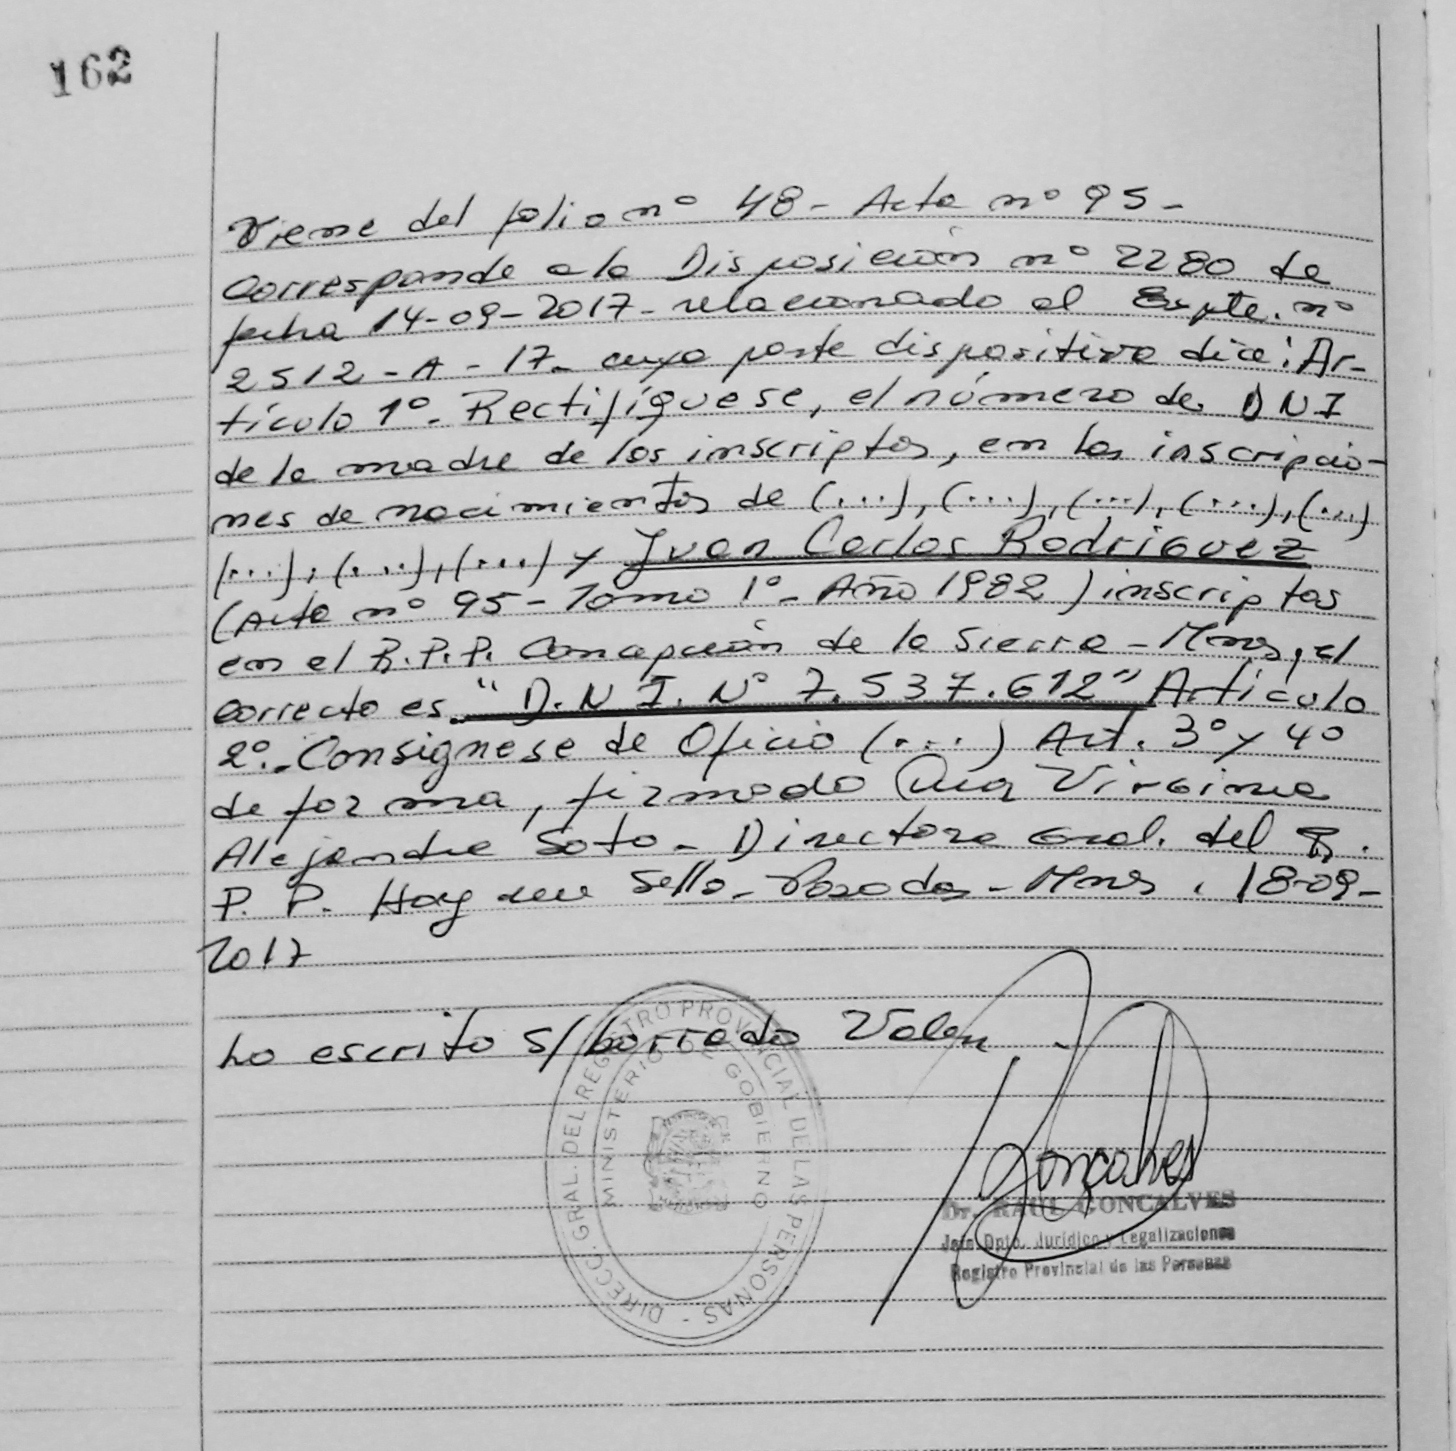 162
Viene del folio nº 48 - Acta nº 95 -
Corresponde a la Disposición nº 2280 de
fecha 14-09-2017 - relacionado al Expte. nº
2512 - A - 17 - cuya parte dispositiva dice: Ar-
tículo 1º - Rectifíquese, el número de DNI
de la madre de los inscriptos, en las inscripcio-
nes de nacimientos de (...), (...), (...), (...), (...)
(...), (...), (...) y Juan Carlos Rodriguez
(Acta nº 95 - Tomo 1º - Año 1982) inscriptas
en el R.P.P. Concepción de la Sierra - Mnes, el
correcto es "D.N.I. Nº 7.537.612" Artículo
2º - Consignese de Oficio (...) Art. 3º y 4º
de forma, firmado Virginia
Alejandra Soto - Directora Gral. del R.
P. P. Hay un Sello - Posadas - Mnes. 18-09-
2017
Lo escrito s/ borrado Valen
DIRECC. GRAL. DEL REGISTRO PROVINCIAL DE LAS PERSONAS -
MINISTERIO DE GOBIERNO
Goncalves
Dr. RAUL GONCALVES
Jefe Dpto. Jurídico y Legalizaciones
Registro Provincial de las Personas